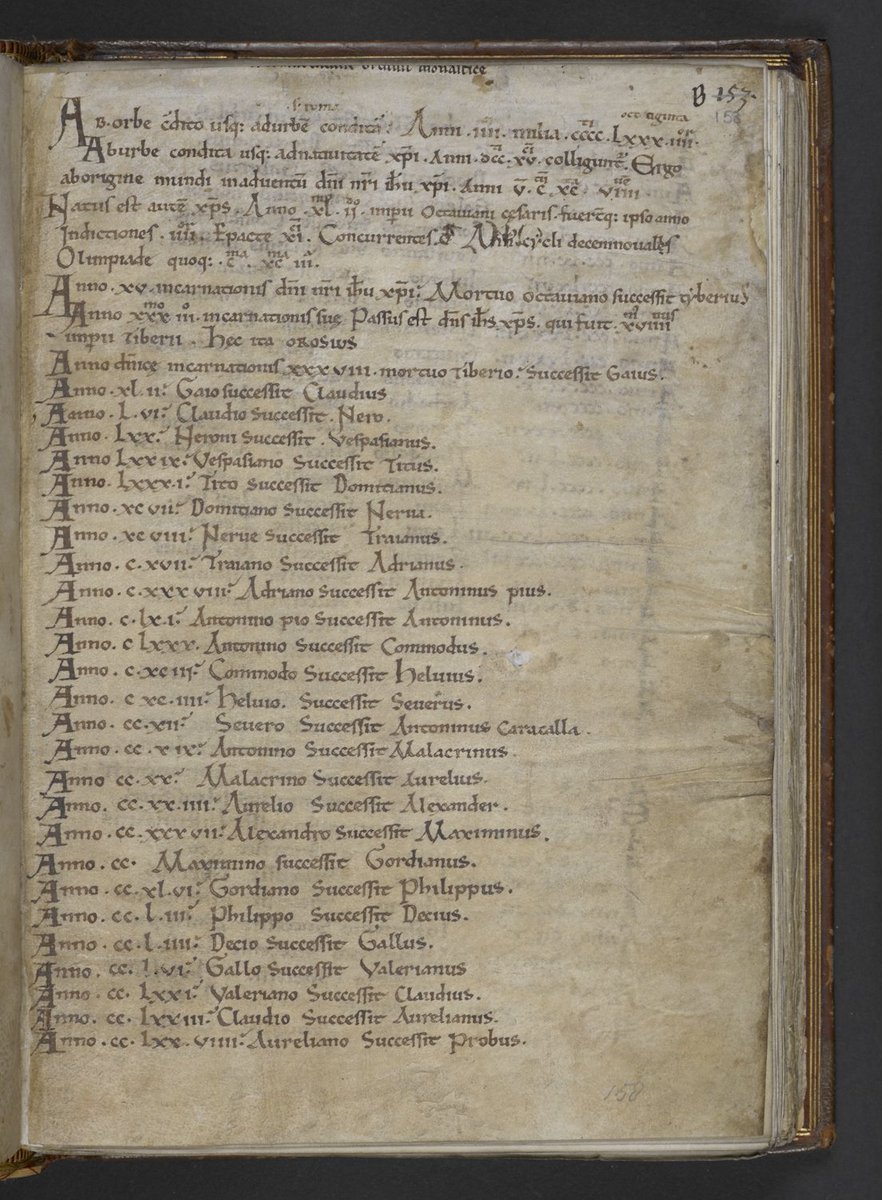 ordinis monastice
B 157.
158
s. roma
octoginta
AB. orbe cōdito usq; adurbē conditā. Anni .iiii. milia .cccc. Lxxx.iiii.
Aburbe condita usq; adnatiuitatē xp̄i. Anni .dcc.xv. colligunt̄. Ergo
aborigine mundi inaduentū dn̄i nr̄i ih̄u xp̄i. Anni v̄. c̄. xc̄. viiii
Natus est autē xp̄s. Anno .xl.ii. imperii Octauiani cesaris. fuert̄q; ipso anno
Indictiones .iiii. Epacte xi. Concurrentes. cycli decennouales
Olimpiade quoq; .c. xc iii.
Anno .xv. incarnationis dn̄i nr̄i ih̄u xp̄i. Mortuo octauiano successit tyberius
Anno xxx iii. incarnationis sue Passus est dn̄s ih̄s xp̄s. qui fuit .xviiii
imperii Tiberii. Hec ita OROSIUS
Anno dn̄ice incarnationis xxxviii. mortuo Tiberio. Successit Gaius.
Anno .xl.ii. Gaio successit Claudius
Anno .L.vi. Claudio Successit .Nero.
Anno. Lxx. Neroni Successit .Vespasianus.
Anno Lxxix. Vespasiano Successit Titus.
Anno. Lxxx.i. Tito Successit Domitianus.
Anno. xcvii. Domitiano Successit Nerua.
Anno. xcviii. Nerue Successit Traianus.
Anno. c.xvii. Traiano Successit Adrianus.
Anno. c.xxxviii. Adriano Successit Antoninus pius.
Anno. c.lx.i. Antonino pio Successit Antoninus.
Anno. c lxxx. Antonino Successit Commodus.
Anno. c.xciii. Commodo Successit Heluius.
Anno. c xc.iiii. Heluio. Successit Seuerus.
Anno. cc.xii. Seuero Successit Antoninus Caracalla.
Anno. cc.xix. Antonino Successit Malacrinus.
Anno cc.xx. Malacrino Successit Aurelius.
Anno. cc.xx.iiii. Aurelio Successit Alexander.
Anno. cc.xxxvii. Alexandro Successit Maximinus.
Anno. cc. Maximino successit Gordianus.
Anno. cc.xl.vi. Gordiano Successit Philippus.
Anno. cc.l.iii. Philippo Successit Decius.
Anno. cc.l.iiii. Decio Successit Gallus.
Anno. cc.l.vi. Gallo Successit Valerianus
Anno. cc.lxxi. Valeriano Successit Claudius.
Anno. cc.lxxiii. Claudio Successit Aurelianus.
Anno. cc.lxx.viiii. Aureliano Successit Probus.
158